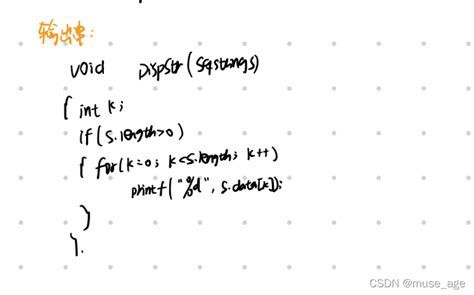 输出串:
void DispStr(Sqstring s)
{ int k;
if(s.length>0)
{ for(k=0; k<s.length; k++)
printf("%d", s.data[k]);
}
}.
CSDN @muse_age